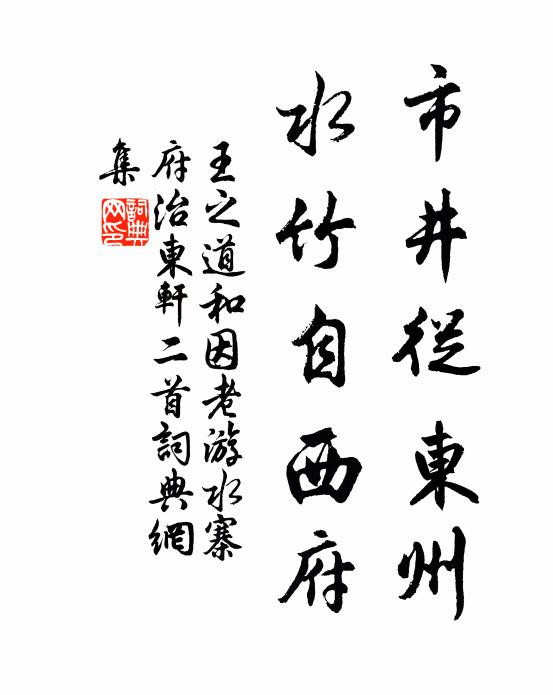 市井從東州
水竹自西府
王之道和因老游水寨
府治東軒二首詞典網
集
詞典網印